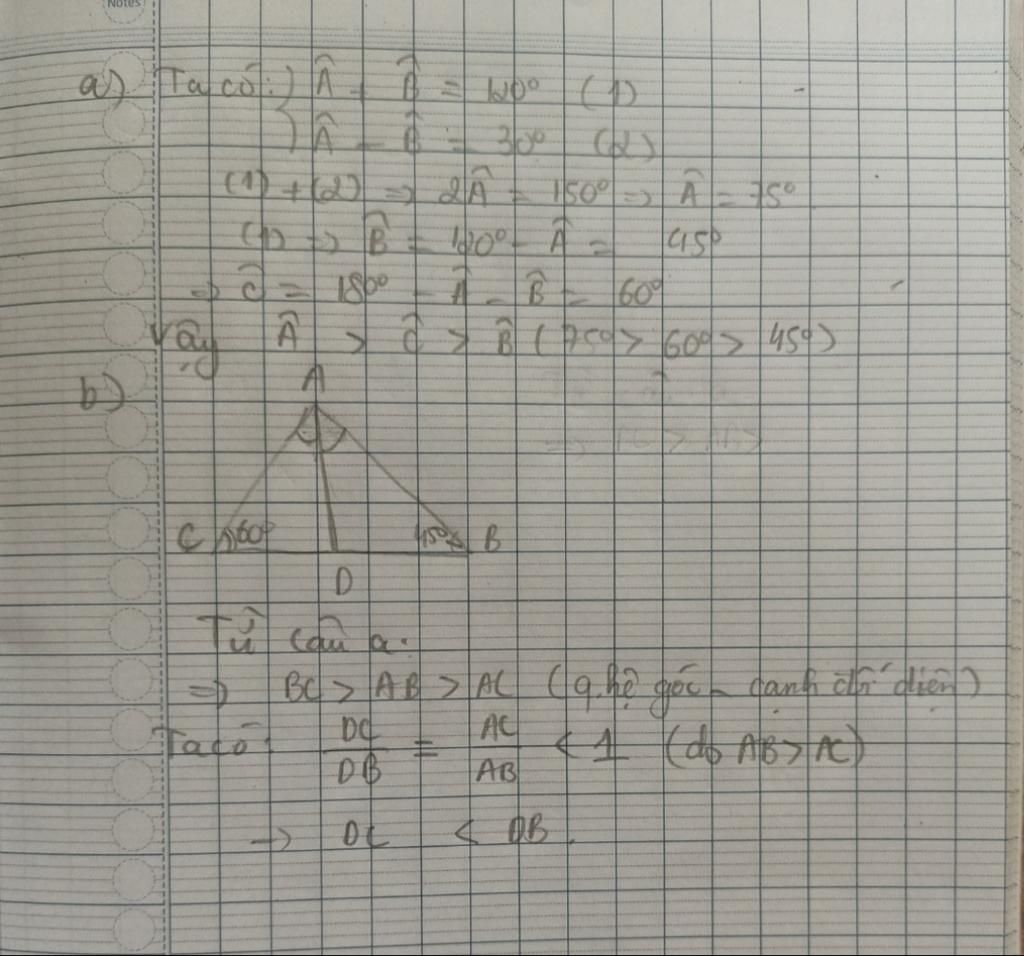 Notes
a) Ta có: Â + B̂ = 120° (1)
Â - B̂ = 30° (2)
(1) + (2) => 2Â = 150° => Â = 75°
(1) => B̂ = 120° - Â = 45°
=> Ĉ = 180° - Â - B̂ = 60°
Vậy Â > Ĉ > B̂ (75° > 60° > 45°)
b)
A
C 60° 45° B
D
Từ câu a:
=> BC > AB > AC (q.hệ góc - cạnh đối diện)
Ta có: DC/DB = AC/AB < 1 (do AB > AC)
-> DC < DB.